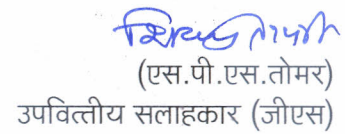 (एस.पी.एस.तोमर)
उपवित्तीय सलाहकार (जीएस)